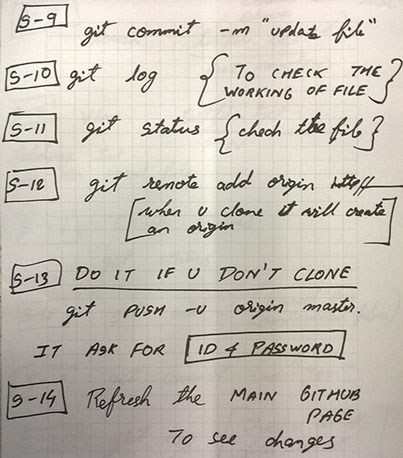 S-9
git commit -m "update file"
S-10 git log { TO CHECK THE
WORKING OF FILE }
S-11 git status { chech the file }
S-12 git remote add origin http//
[ when u clone it will create
an origin ]
S-13 DO IT IF U DON'T CLONE
git PUSH -u origin master.
IT ASK FOR ID & PASSWORD
S-14 Refresh the MAIN GITHUB
PAGE
To see changes